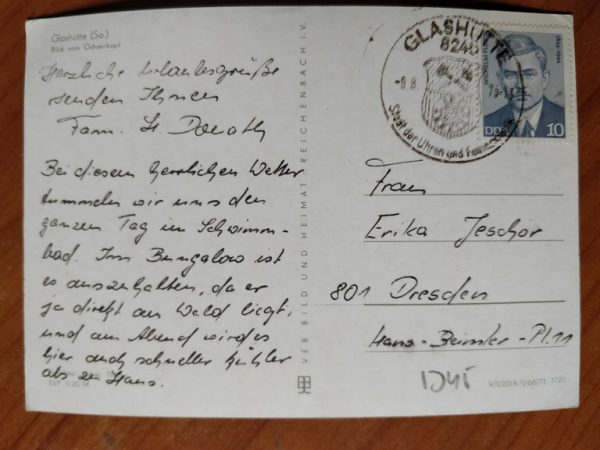 Glashütte (Sa.)
Blick vom Ochsenkopf
Herzliche Urlaubsgrüße
senden Ihnen
Fam. H. Donath
Bei diesem herrlichen Wetter
tummeln wir uns den
ganzen Tag im Schwimm-
bad. Im Bungalow ist
es auszuhalten, da er
ja direkt am Wald liegt,
und am Abend wird es
hier auch schneller kühler
als zu Haus.
VEB BILD UND HEIMAT REICHENBACH i. V.
GLASHÜTTE
8245
Stadt der Uhren und
DDR 10
Frau
Erika Jeschor
801 Dresden
Hans-Beimler-Pl. 11
V/1/20/A/1/68/71 1720